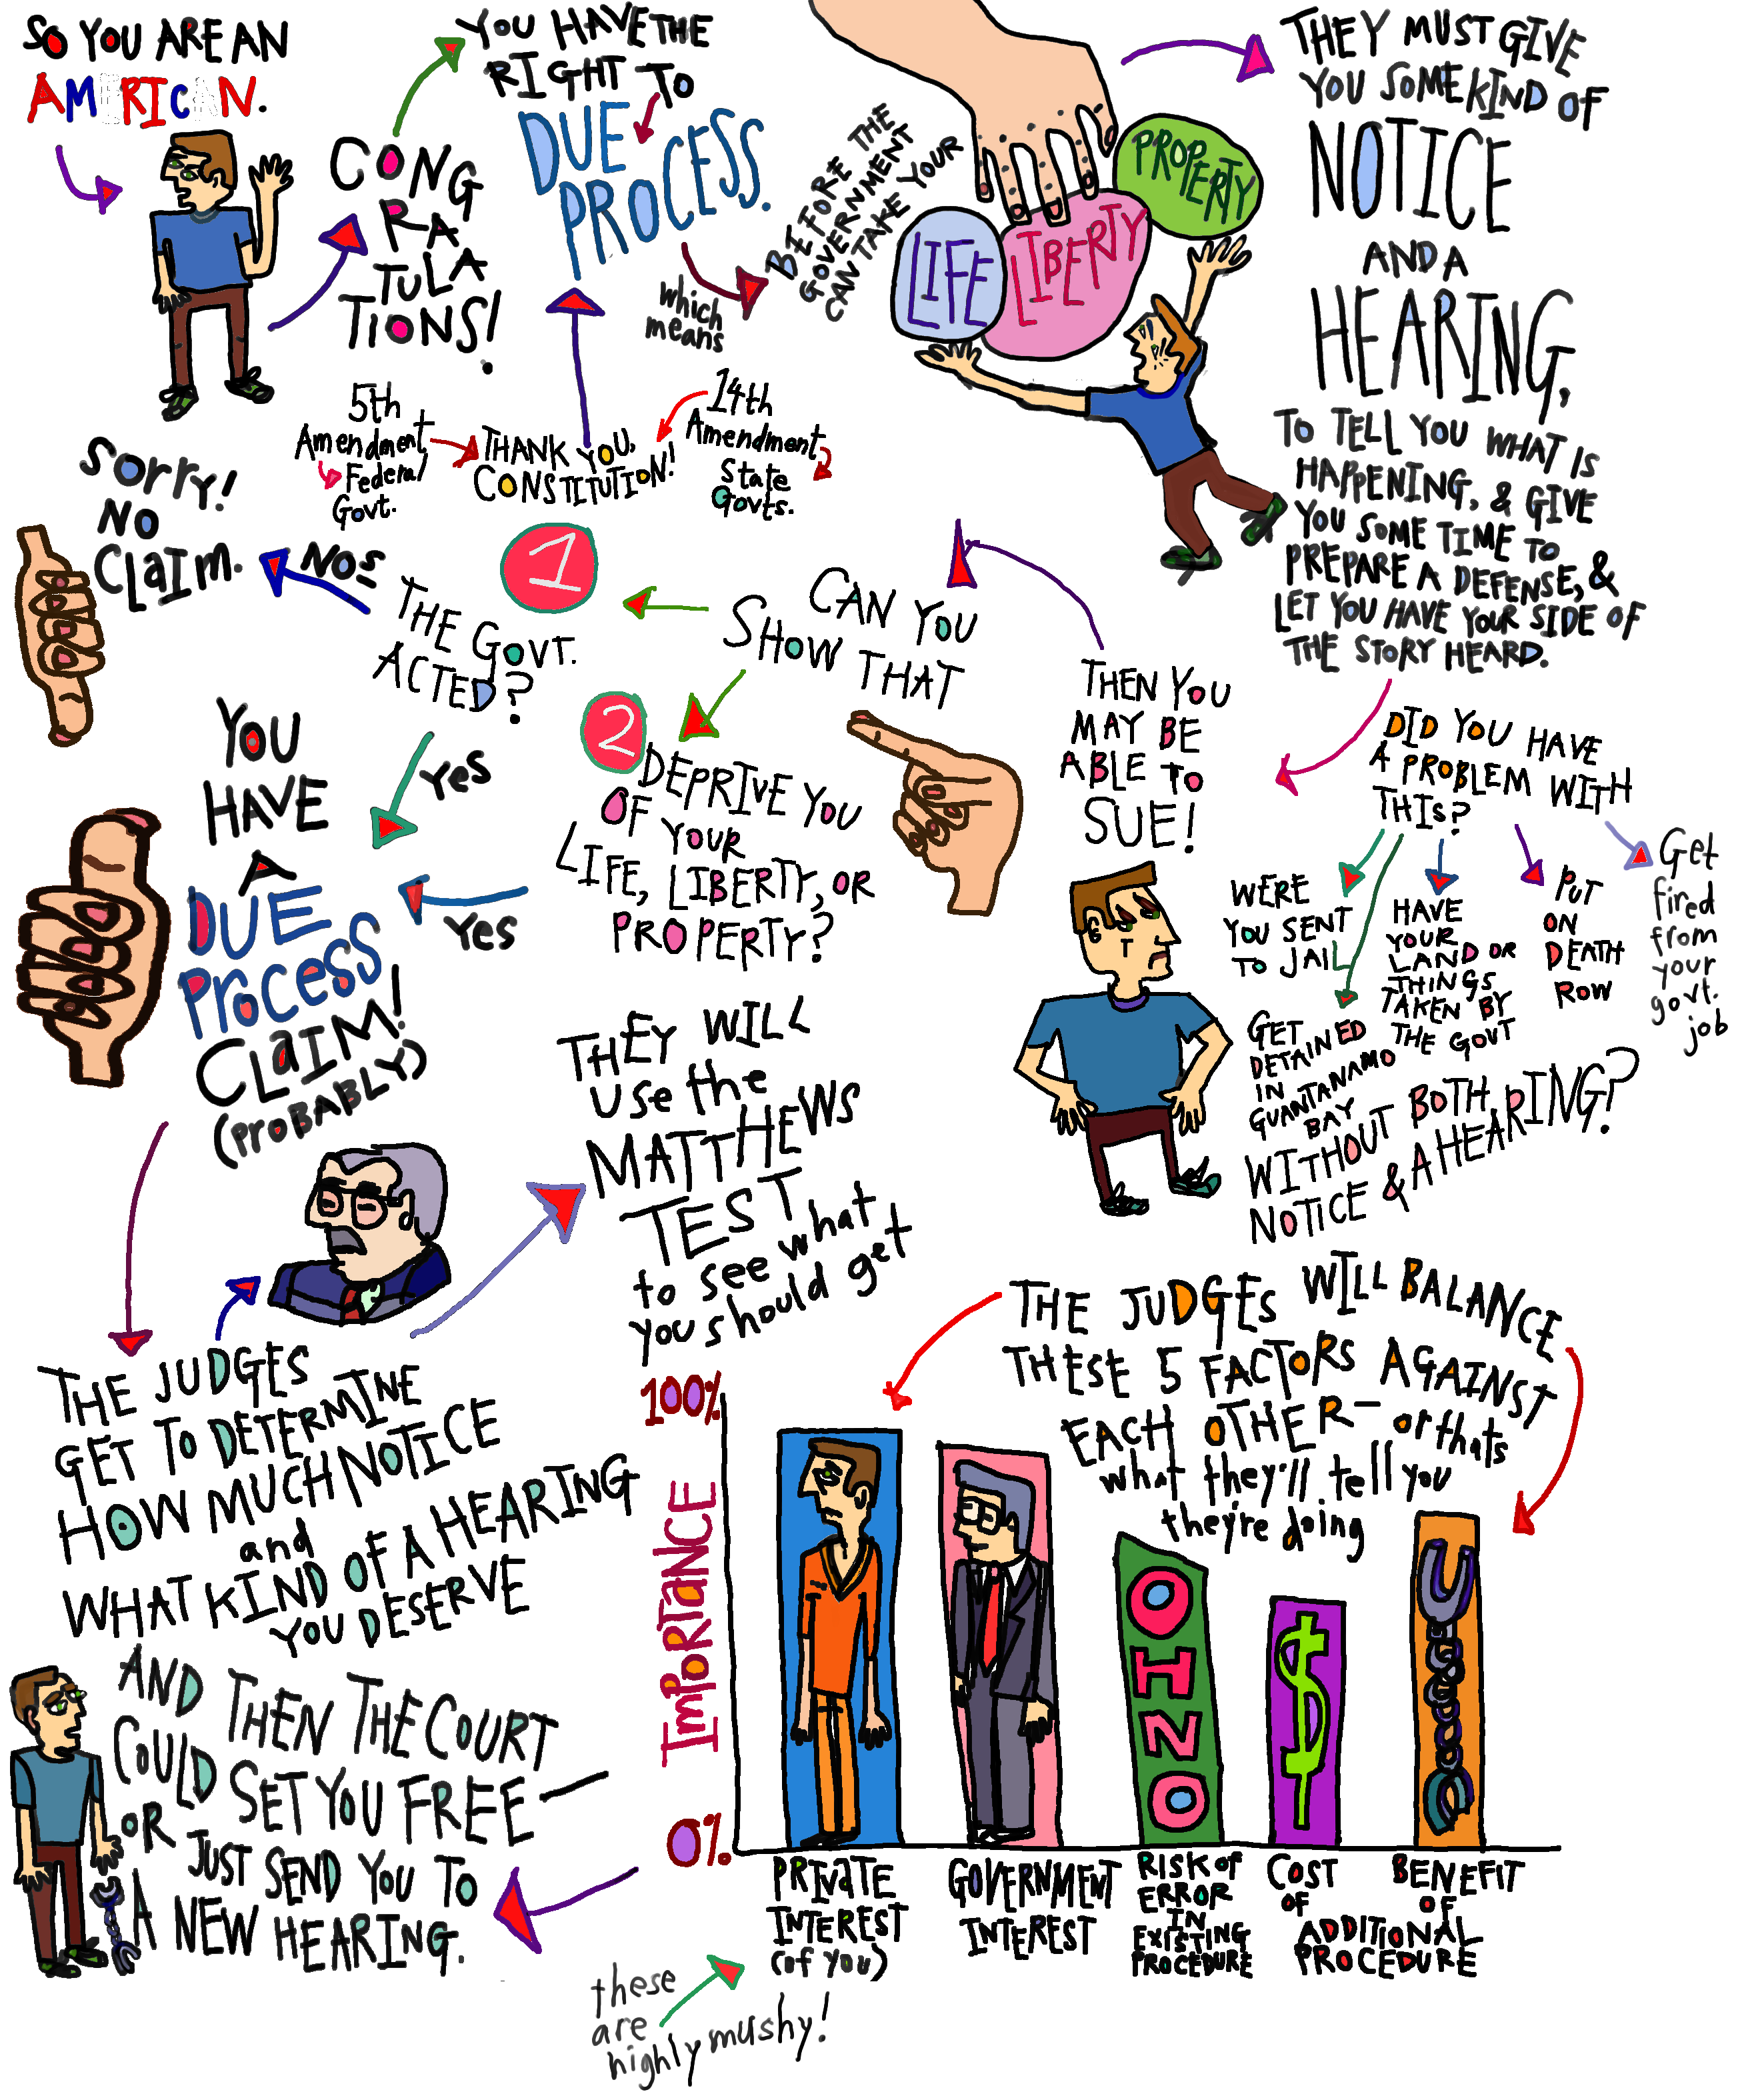 SO YOU ARE AN
AMERICAN.
CONG
RA
TULA
TIONS!
YOU HAVE THE
RIGHT TO
DUE
PROCESS.
5th
Amendment
Federal
Govt.
THANK YOU,
CONSTITUTION!
14th
Amendment
State
Govts.
which
means
BEFORE THE
GOVERNMENT
CAN TAKE YOUR
LIFE
LIBERTY
PROPERTY
THEY MUST GIVE
YOU SOME KIND OF
NOTICE
AND A
HEARING,
TO TELL YOU WHAT IS
HAPPENING, & GIVE
YOU SOME TIME TO
PREPARE A DEFENSE, &
LET YOU HAVE YOUR SIDE OF
THE STORY HEARD.
DID YOU HAVE
A PROBLEM WITH
THIS?
WERE
YOU SENT
TO JAIL
GET
DETAINED
IN
GUANTANAMO
BAY
HAVE
YOUR
LAND OR
THINGS
TAKEN BY
THE GOVT
PUT
ON
DEATH
ROW
Get
fired
from
your
govt.
job
WITHOUT BOTH
NOTICE & A HEARING?
THEN YOU
MAY BE
ABLE TO
SUE!
CAN YOU
SHOW THAT
1
THE GOVT.
ACTED?
Nos
Sorry!
NO
CLaIM.
yes
2
DEPRIVE YOU
OF YOUR
LIFE, LIBERTY, OR
PROPERTY?
yes
YOU
HAVE
A
DUE
PROCESS
CLaIM!
(PROBABLY)
THE JUDGES
GET TO DETERMINE
HOW MUCH NOTICE
and
WHAT KIND OF A HEARING
YOU DESERVE
THEY WILL
use the
MATTHEWS
TEST
to see what
you should get
THE JUDGES WILL BALANCE
THESE 5 FACTORS AGAINST
EACH OTHER— or thats
what they'll tell you
they're doing
100%
IMPORTaNCE
0%
OH NO
$
PRIVaTE
INTEREST
(of you)
GOVERNMENT
INTEREST
RISK of
ERROR
IN
EXISTING
PROCEDURE
COST BENEFIT
OF OF
ADDITIONAL
PROCEDURE
these
are
highly mushy!
AND THEN THE COURT
COULD SET YOU FREE —
OR JUST SEND YOU TO
A NEW HEARING.